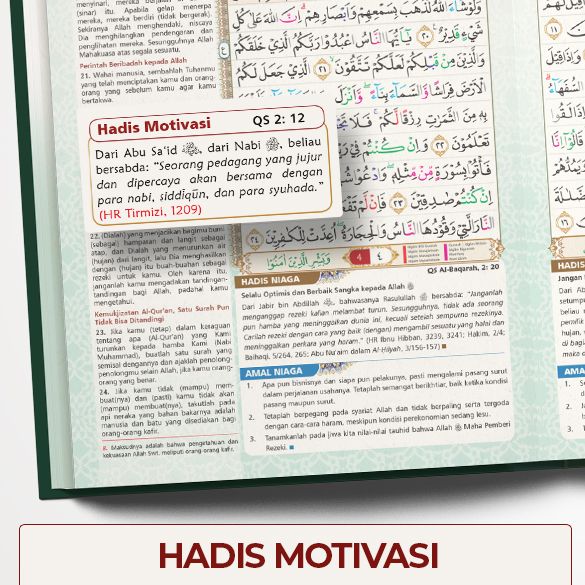 menyinari, mereka berjalan di bawah
(sinar) itu. Apabila gelap menerpa
mereka, mereka berdiri (tidak bergerak).
Sekiranya Allah menghendaki, niscaya
Dia menghilangkan pendengaran dan
penglihatan mereka. Sesungguhnya Allah
Mahakuasa atas segala sesuatu.
Perintah Beribadah kepada Allah
21. Wahai manusia, sembahlah Tuhanmu
yang telah menciptakan kamu dan orang-
orang yang sebelum kamu agar kamu
bertakwa.
Hadis Motivasi QS 2: 12
Dari Abu Sa'id ﷺ, dari Nabi ﷺ, beliau
bersabda: “Seorang pedagang yang jujur
dan dipercaya akan bersama dengan
para nabi, siddīqūn, dan para syuhada.”
(HR Tirmizi, 1209)
22. (Dialah) yang menjadikan bagimu bumi
(sebagai) hamparan dan langit sebagai
atap, dan Dialah yang menurunkan air
(hujan) dari langit, lalu Dia menghasilkan
dengan (hujan) itu buah-buahan sebagai
rezeki untuk kamu. Oleh karena itu,
janganlah kamu mengadakan tandingan-
tandingan bagi Allah, padahal kamu
mengetahui.
Kemukjizatan Al-Qur'an, Satu Surah Pun
Tidak Bisa Ditandingi
23. Jika kamu (tetap) dalam keraguan
tentang apa (Al-Qur'an) yang Kami
turunkan kepada hamba Kami (Nabi
Muhammad), buatlah satu surah yang
semisal dengannya dan ajaklah penolong-
penolongmu selain Allah, jika kamu orang-
orang yang benar.
24. Jika kamu tidak (mampu) mem-
buat(nya) dan (pasti) kamu tidak akan
(mampu) membuat(nya), takutlah pada
api neraka yang bahan bakarnya adalah
manusia dan batu yang disediakan bagi
orang-orang kafir.
8. Maksudnya adalah bahwa pengetahuan dan
kekuasaan Allah Swt. meliputi orang-orang kafir.
وَلَوْشَاۤءَ اللّٰهُ لَذَهَبَ بِسَمْعِهِمْ وَاَبْصَارِهِمْ ۗ اِنَّ اللّٰهَ عَلٰى كُلِّ
شَيْءٍ قَدِيْرٌ ٢٠ يٰٓاَيُّهَا النَّاسُ اعْبُدُوْا رَبَّكُمُ الَّذِيْ خَلَقَكُمْ
وَالَّذِيْنَ مِنْ قَبْلِكُمْ لَعَلَّكُمْ تَتَّقُوْنَ ٢١ الَّذِيْ جَعَلَ لَكُمُ
الْاَرْضَ فِرَاشًا وَّالسَّمَاۤءَ بِنَاۤءً ۖ وَّاَنْزَلَ
بِهٖ مِنَ الثَّمَرٰتِ رِزْقًا لَّكُمْ ۚ فَلَا تَجْ
تَعْلَمُوْنَ ٢٢ وَاِنْ كُنْتُمْ فِيْ رَيْ
فَأْتُوْا بِسُوْرَةٍ مِّنْ مِّثْلِهٖ ۖ وَادْعُوْا
اِنْ كُنْتُمْ صٰدِقِيْنَ ٢٣ فَاِنْ لَّمْ تَفْ
النَّارَ الَّتِيْ وَقُوْدُهَا النَّاسُ وَالْحِجَارَةُ ۖ اُعِدَّتْ لِلْكٰفِرِيْنَ ٢٤
وَبَشِّرِ الَّذِيْنَ اٰمَنُوْا
4 ٤
HADIS NIAGA QS Al-Baqarah, 2: 20
Selalu Optimis dan Berbaik Sangka kepada Allah ﷻ
Dari Jabir bin Abdillah ﷺ, bahwasanya Rasulullah ﷺ bersabda: “Janganlah
menganggap rezeki kalian melambat turun. Sesungguhnya, tidak ada seorang
pun hamba yang meninggalkan dunia ini, kecuali setelah sempurna rezekinya.
Carilah rezeki dengan cara yang baik (dengan) mengambil sesuatu yang halal dan
meninggalkan perkara yang haram.” (HR Ibnu Hibban, 3239, 3241; Hakim, 2/4;
Baihaqi, 5/264, 265; Abu Nu'aim dalam Al-Hilyah, 3/156-157)
AMAL NIAGA
1. Apa pun bisnisnya dan siapa pun pelakunya, pasti mengalami pasang surut
dalam perjalanan usahanya. Tetaplah semangat berikhtiar, baik ketika kondisi
pasang maupun surut.
2. Tetaplah berpegang pada syariat Allah dan tidak berpaling serta tergoda
dengan cara-cara haram, meskipun kondisi perekonomian sedang lesu.
3. Tanamkanlah pada jiwa kita nilai-nilai tauhid bahwa Allah ﷻ Maha Pemberi
Rezeki.
HADIS
Jangan
AMAL
1.
2.
3.
HADIS MOTIVASI